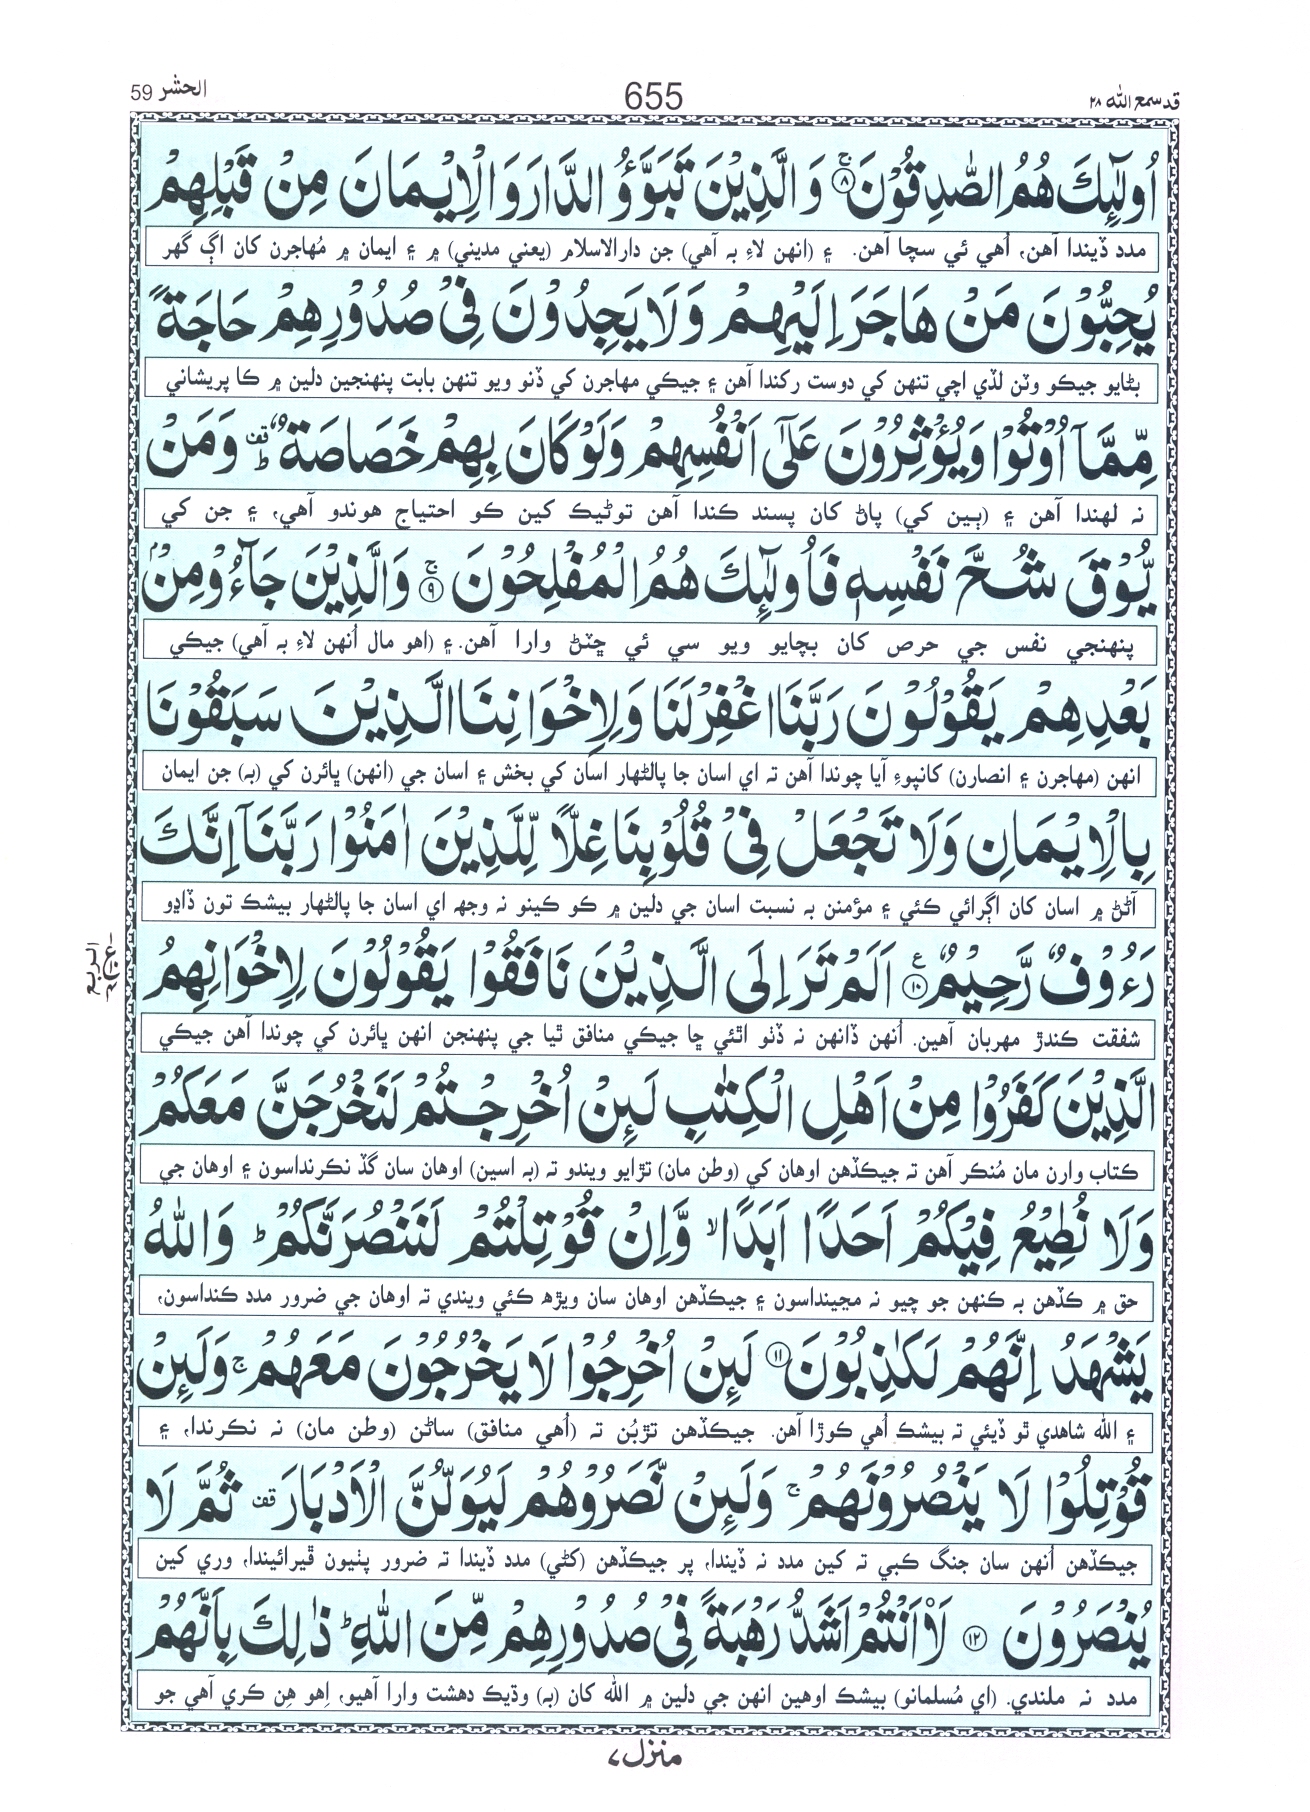 قد سمع الله ٢٨
655
الحشر 59
اُولٰٓئِكَ هُمُ الصّٰدِقُوْنَ ۚ﴿۸﴾ وَ الَّذِيْنَ تَبَوَّؤُ الدَّارَ وَ الْاِيْمَانَ مِنْ قَبْلِهِمْ
مدد ڏيندا آهن، اُهي ئي سچا آهن. ۽ (انهن لاءِ بہ آهي) جن دارالاسلام (يعني مديني) ۾ ۽ ايمان ۾ مُهاجرن کان اڳ گهر
يُحِبُّوْنَ مَنْ هَاجَرَ اِلَيْهِمْ وَلَا يَجِدُوْنَ فِيْ صُدُوْرِهِمْ حَاجَةً
بڻايو جيڪو وٽن لڏي اچي تنهن کي دوست رکندا آهن ۽ جيڪي مهاجرن کي ڏنو ويو تنهن بابت پنهنجين دلين ۾ ڪا پريشاني
مِّمَّآ اُوْتُوْا وَيُؤْثِرُوْنَ عَلٰٓى اَنْفُسِهِمْ وَلَوْ كَانَ بِهِمْ خَصَاصَةٌ ۗ وَمَنْ
نہ لهندا آهن ۽ (ٻين کي) پاڻ کان پسند ڪندا آهن توڻيڪ کين ڪو احتياج هوندو آهي، ۽ جن کي
يُّوْقَ شُحَّ نَفْسِهٖ فَاُولٰٓئِكَ هُمُ الْمُفْلِحُوْنَ ۚ﴿۹﴾ وَالَّذِيْنَ جَآءُوْ مِنْۢ
پنهنجي نفس جي حرص کان بچايو ويو سي ئي ڇٽڻ وارا آهن. ۽ (اهو مال اُنهن لاءِ بہ آهي) جيڪي
بَعْدِهِمْ يَقُوْلُوْنَ رَبَّنَا اغْفِرْ لَنَا وَلِاِخْوَانِنَا الَّذِيْنَ سَبَقُوْنَا
انهن (مهاجرن ۽ انصارن) کانپوءِ آيا چوندا آهن تہ اي اسان جا پالڻهار اسان کي بخش ۽ اسان جي (انهن) ڀائرن کي (بہ) جن ايمان
بِالْاِيْمَانِ وَلَا تَجْعَلْ فِيْ قُلُوْبِنَا غِلًّا لِّلَّذِيْنَ اٰمَنُوْا رَبَّنَآ اِنَّكَ
آڻڻ ۾ اسان کان اڳرائي ڪئي ۽ مؤمنن بہ نسبت اسان جي دلين ۾ ڪو ڪينو نہ وجهہ اي اسان جا پالڻهار بيشڪ تون ڏاڍو
رَءُوْفٌ رَّحِيْمٌ ﴿۱۰﴾ اَلَمْ تَرَ اِلَى الَّذِيْنَ نَافَقُوْا يَقُوْلُوْنَ لِاِخْوَانِهِمُ
شفقت ڪندڙ مهربان آهين. اُنهن ڏانهن نہ ڏٺو اٿئي ڇا جيڪي منافق ٿيا جي پنهنجن انهن ڀائرن کي چوندا آهن جيڪي
الَّذِيْنَ كَفَرُوْا مِنْ اَهْلِ الْكِتٰبِ لَئِنْ اُخْرِجْتُمْ لَنَخْرُجَنَّ مَعَكُمْ
ڪتاب وارن مان مُنڪر آهن تہ جيڪڏهن اوهان کي (وطن مان) تڙايو ويندو تہ (بہ اسين) اوهان سان گڏ نڪرنداسون ۽ اوهان جي
وَلَا نُطِيْعُ فِيْكُمْ اَحَدًا اَبَدًا ۙ وَّاِنْ قُوْتِلْتُمْ لَنَنْصُرَنَّكُمْ ؕ وَاللّٰهُ
حق ۾ ڪڏهن بہ ڪنهن جو چيو نہ مڃينداسون ۽ جيڪڏهن اوهان سان ويڙهہ ڪئي ويندي تہ اوهان جي ضرور مدد ڪنداسون،
يَشْهَدُ اِنَّهُمْ لَكٰذِبُوْنَ ﴿۱۱﴾ لَئِنْ اُخْرِجُوْا لَا يَخْرُجُوْنَ مَعَهُمْ ۚ وَلَئِنْ
۽ الله شاهدي ٿو ڏيئي تہ بيشڪ اُهي ڪوڙا آهن. جيڪڏهن تڙبُن تہ (اُهي منافق) ساڻن (وطن مان) نہ نڪرندا، ۽
قُوْتِلُوْا لَا يَنْصُرُوْنَهُمْ ۚ وَلَئِنْ نَّصَرُوْهُمْ لَيُوَلُّنَّ الْاَدْبَارَ ۫ ثُمَّ لَا
جيڪڏهن اُنهن سان جنگ ڪبي تہ کين مدد نہ ڏيندا، پر جيڪڏهن (کڻي) مدد ڏيندا تہ ضرور پٺيون ڦيرائيندا، وري کين
يُنْصَرُوْنَ ﴿۱۲﴾ لَاَ۟انْتُمْ اَشَدُّ رَهْبَةً فِيْ صُدُوْرِهِمْ مِّنَ اللّٰهِ ؕ ذٰلِكَ بِاَنَّهُمْ
مدد نہ ملندي. (اي مُسلمانو) بيشڪ اوهين انهن جي دلين ۾ الله کان (بہ) وڌيڪ دهشت وارا آهيو، اِهو هِن ڪري آهي جو
الربع
منزل ۷